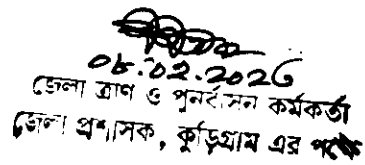 ০৮.০২.২০২৬
জেলা ত্রাণ ও পুনর্বাসন কর্মকর্তা
জেলা প্রশাসক, কুড়িগ্রাম এর পক্ষে